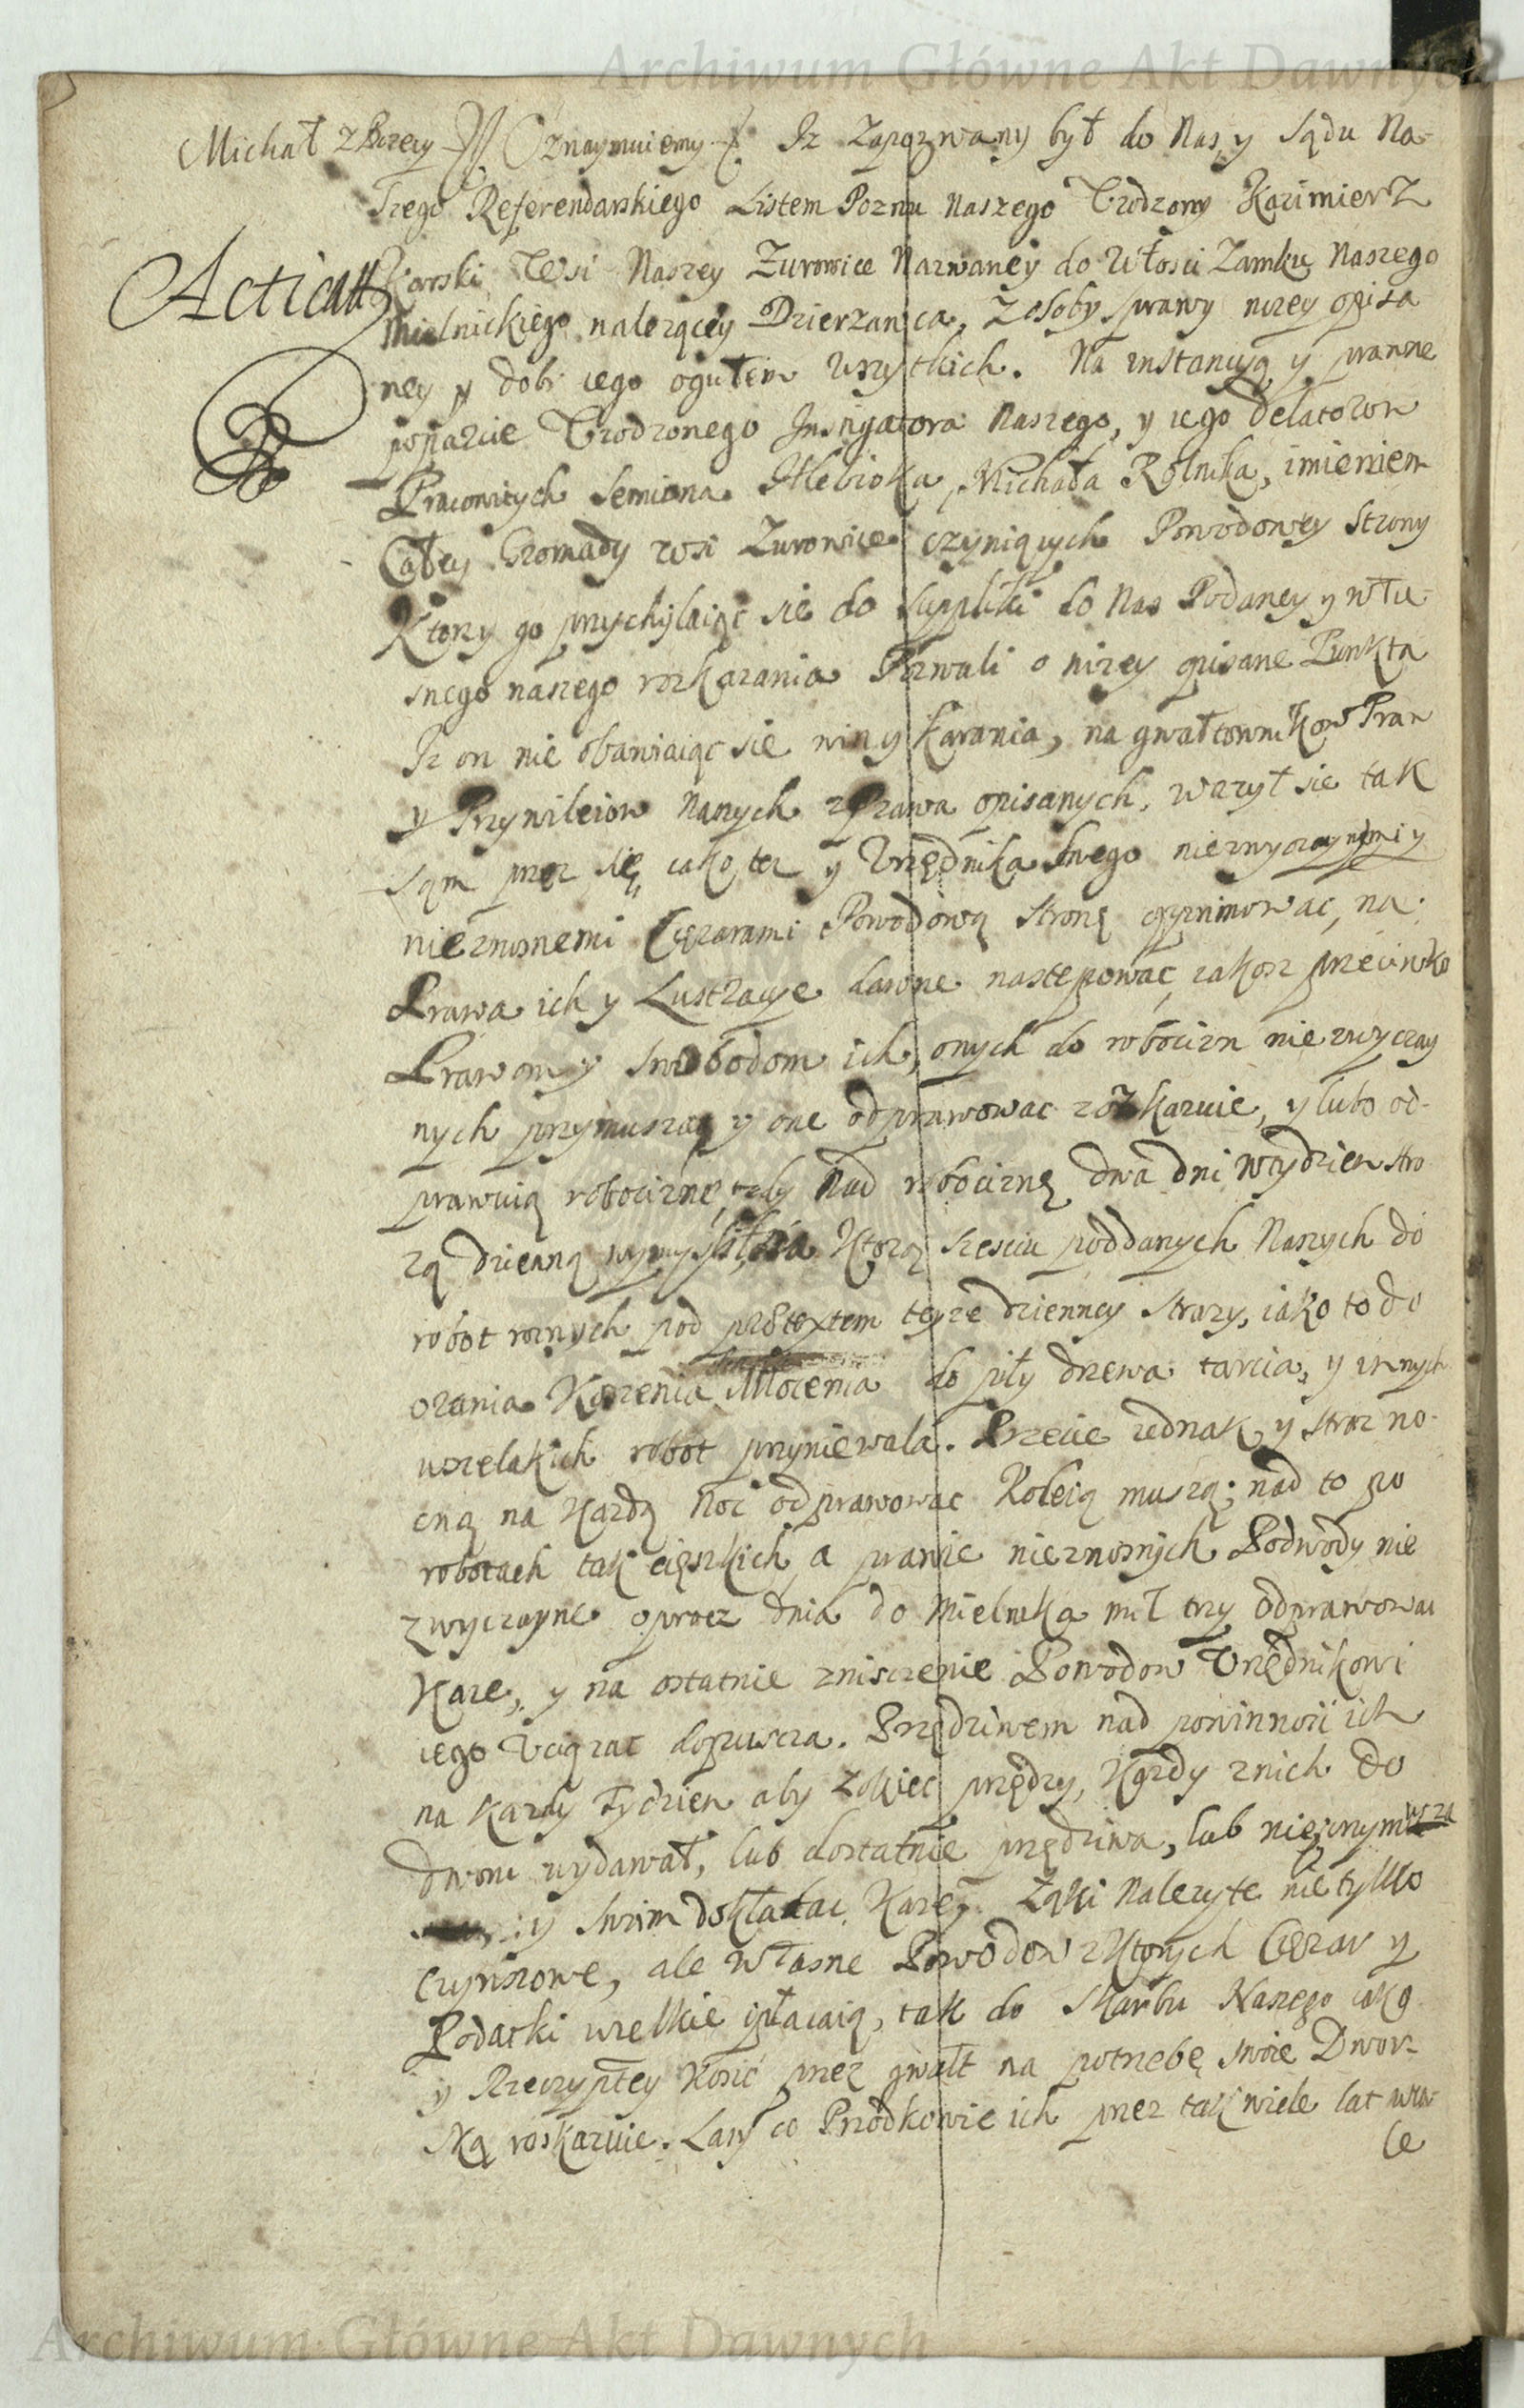 Archiwum Główne Akt Dawnych
Michał z Bozey Oznaymuiemy Iz Zapozwany był do Nas, y Sądu Na-
szego Referendarskiego Listem Pozwu Naszego Urodzony Kazimierz
Karski Wsi Naszey Zurowice Nazwaney do Włosci Zamku Naszego
Acticatt
Mielnickiego nalezącey Dzierzawca, z osoby sprawy nizey opisa
ney y dobr iego ogułem wszytkich. Na instancyą y prawne
poparcie Urodzonego Instygatora Naszego, y iego Delatorow
Pracowitych Semiona Hlebioka, Michała Rolnika, imieniem
Całey Gromady wsi Zurowice czyniących Powodowey Strony
Ktorzy go przychylaiąc sie do Suppliki do Nas Podaney y wła-
snego naszego rozkazania Pozwali o nizey opisane Punkta
Iz on nie obawiaiąc sie win y karania, na gwałtownikow Praw
y Przywileiow Naszych z Prawa opisanych, wazył sie tak
sąm przez się, iako tez y Urzędnika swego niezwyczaynymi y
nieznosnemi Cięzarami Powodową stronę opprimowac, na
Prawa ich y Lustracye dawne nastepowac, iakosz przeciwko
Prawom y Swobodom ich, onych do robocizn niezwyczay
nych przymuszaą y one odprawowac rozkazuie, y lubo od-
prawuią robociznę, tedy Nad robociznę dwa dni w tydzien stro
zą dzienną wymyslił, na Ktorą szesciu poddanych Naszych do
robot roznych pod praetextem teyze dzienney Strazy, iako to do
orania Koszenia Młocenia do piły drzewa tarcia, y innych
wszelakich robot przyniewala. Przecie iednak y stroz no-
cną na Kazdą Noc odprawowac Koleią muszą; nad to po
robotach tak cięszkich a prawie nieznosnych Podwody nie
zwyczayne oprocz dnia do Mielnika mil trzy odprawowac
Kaze, y na ostatnie zniszczenie Powodow Urzędnikowi
iego Uciązac dopuscza. Przędziwem nad powinnosc ich
na Kazdy Tydzien aby Łokiec przędzy, Kazdy z nich do
dworu wydawał, lub dostatnie przędziwa, lub nie, wymusza
y swim dokładac Kaze, Łąki Nalezyte nie tylko
Czynszowe, ale własne Powodow z Ktorych Cięzar y
Podatki wselkie płacaią, tak do Skarbu Naszego iako
y Rzeczyptey Kosic przez gwałt na potrzebę swoie Dwor-
ską roskazuie. Lasy co Przodkowie ich przez tak wiele lat wza-
ce
Archiwum Główne Akt Dawnych